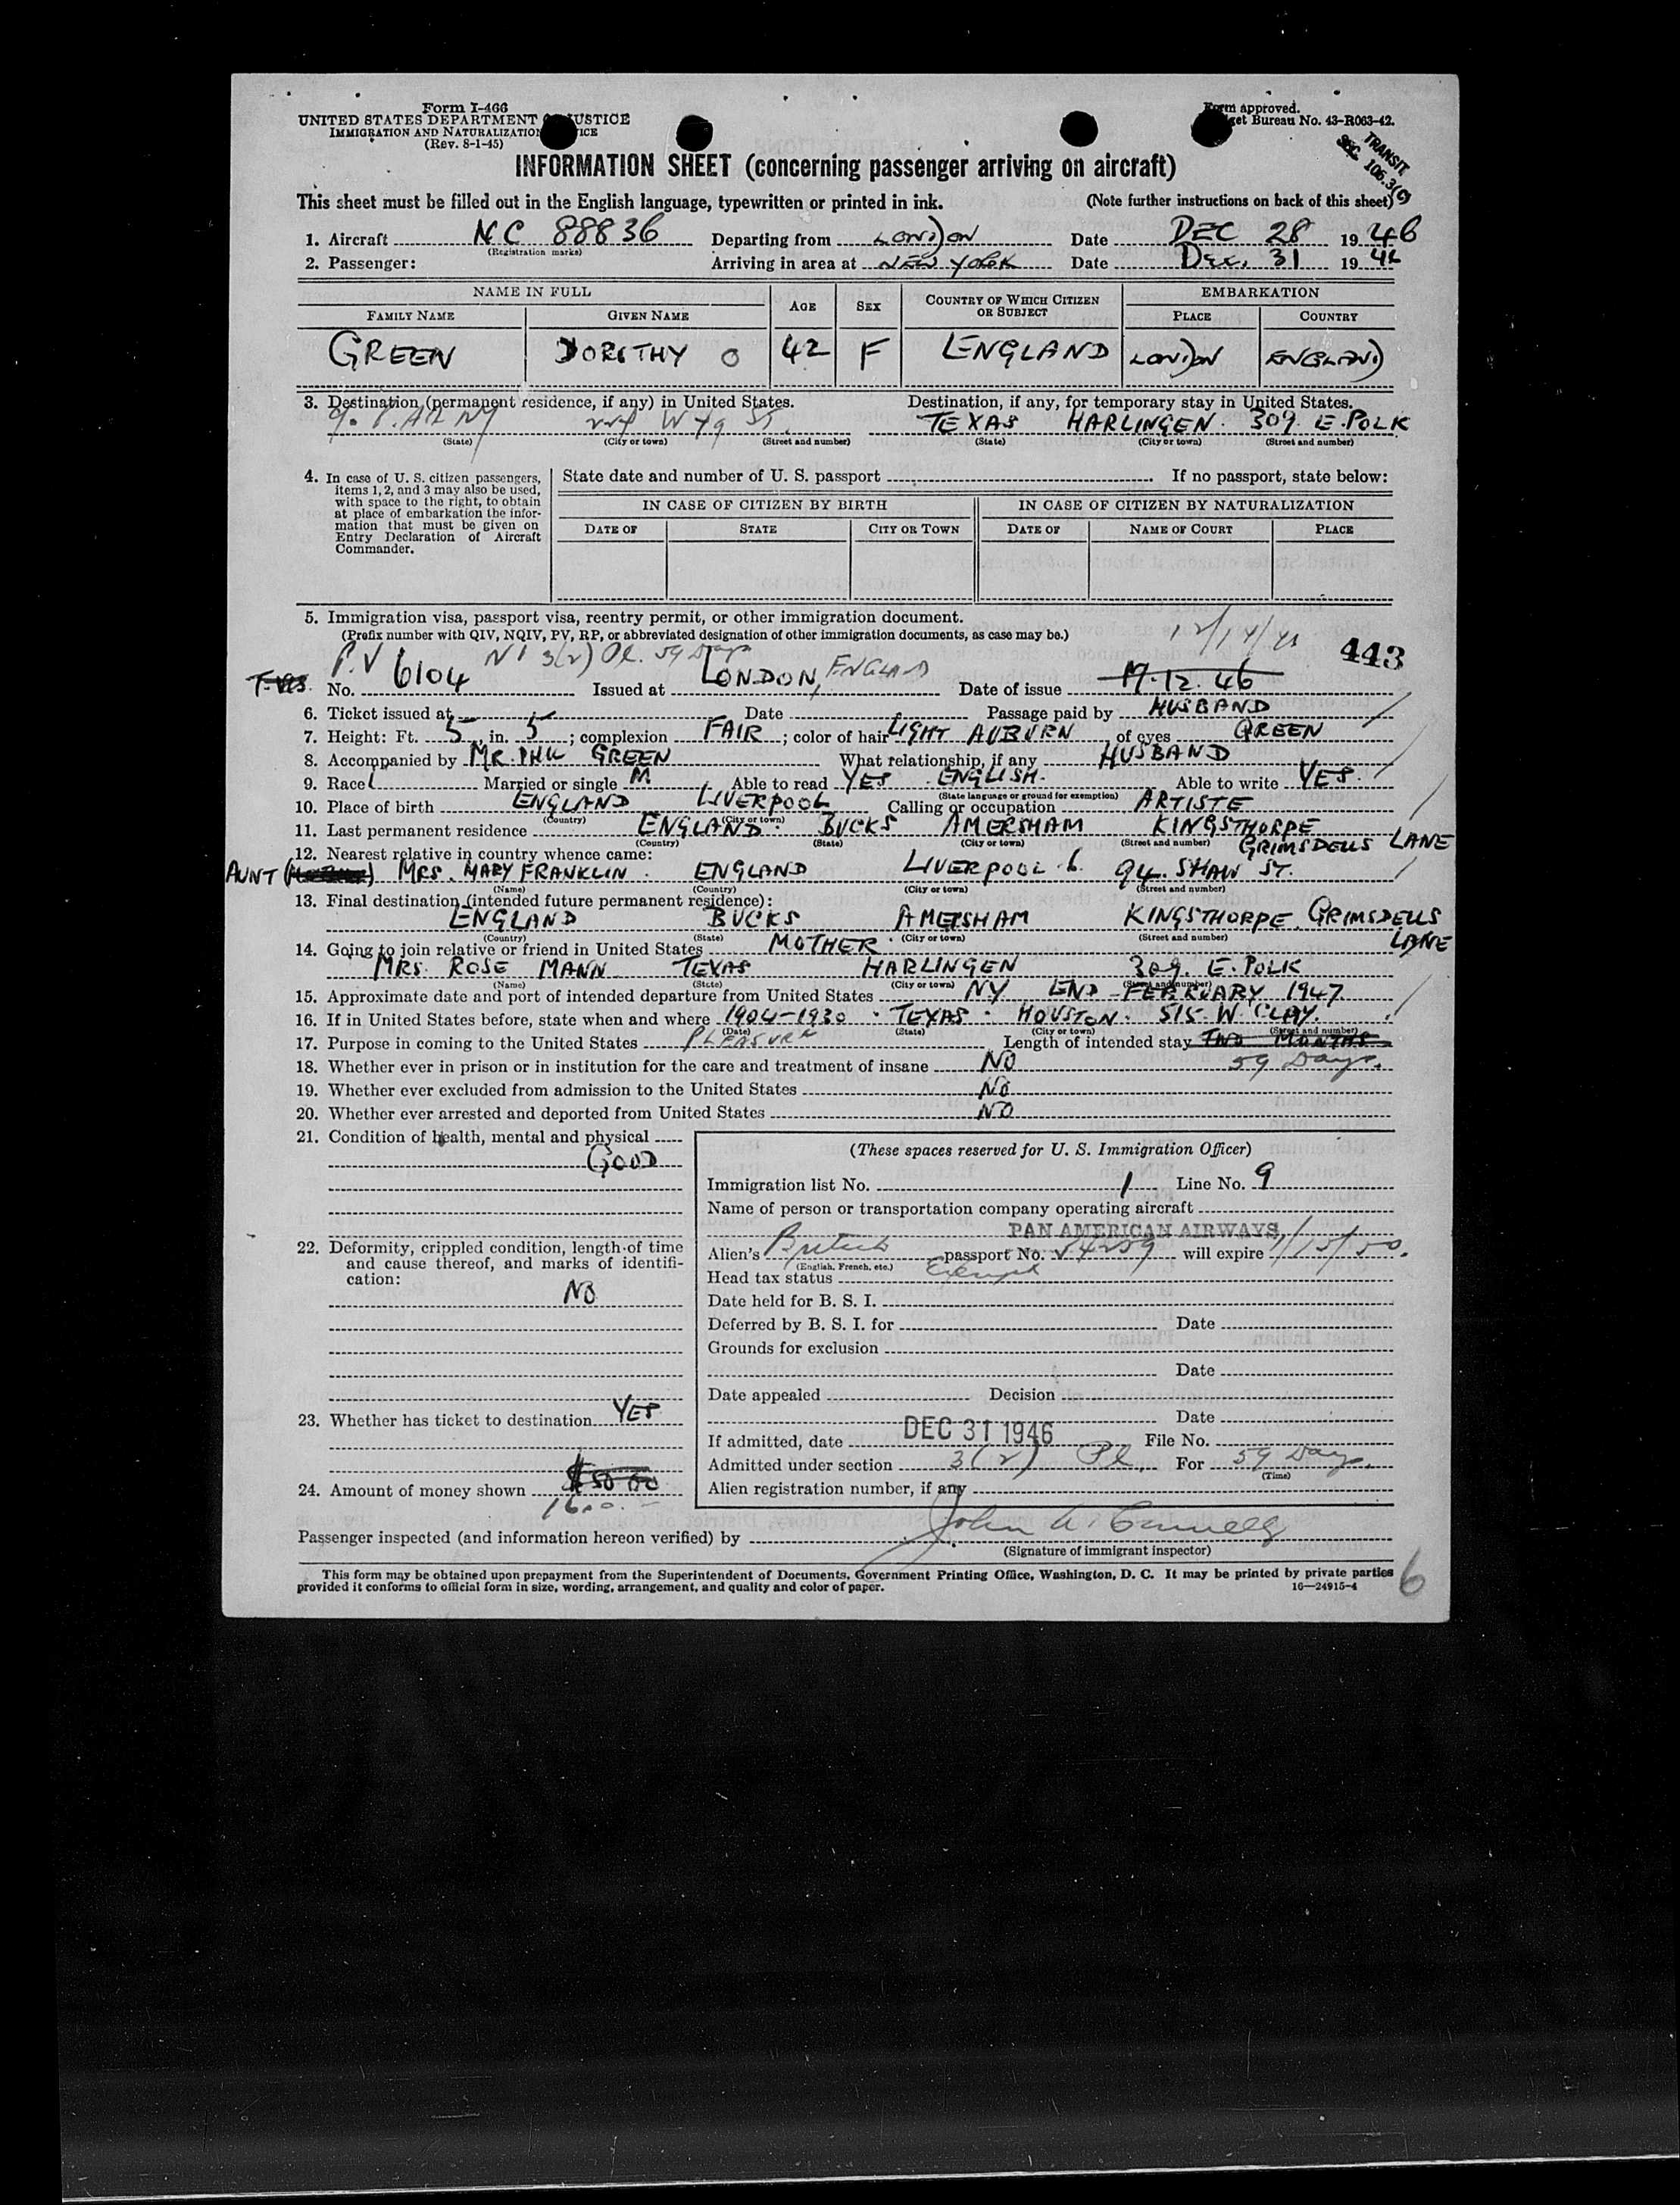 Form I-466
UNITED STATES DEPARTMENT JUSTICE
IMMIGRATION AND NATURALIZATION
(Rev. 8-1-45)
Form approved.
Bureau No. 43-R063-42.
TRANSIT
SEC. 106.3(c)
INFORMATION SHEET (concerning passenger arriving on aircraft)
This sheet must be filled out in the English language, typewritten or printed in ink. (Note further instructions on back of this sheet)
1. Aircraft NC 88836 Departing from LONDON Date DEC 28 1946
(Registration marks)
2. Passenger: Arriving in area at NEW YORK Date Dec. 31 1946
NAME IN FULL AGE SEX COUNTRY OF WHICH CITIZEN OR SUBJECT EMBARKATION
FAMILY NAME GIVEN NAME PLACE COUNTRY
GREEN DOROTHY O 42 F ENGLAND LONDON ENGLAND
3. Destination (permanent residence, if any) in United States. Destination, if any, for temporary stay in United States.
W 49 ST. TEXAS HARLINGEN. 309. E. POLK
(State) (City or town) (Street and number) (State) (City or town) (Street and number)
4. In case of U. S. citizen passengers, items 1, 2, and 3 may also be used, with space to the right, to obtain at place of embarkation the information that must be given on Entry Declaration of Aircraft Commander.
State date and number of U. S. passport If no passport, state below:
IN CASE OF CITIZEN BY BIRTH IN CASE OF CITIZEN BY NATURALIZATION
DATE OF STATE CITY OR TOWN DATE OF NAME OF COURT PLACE
5. Immigration visa, passport visa, reentry permit, or other immigration document.
(Prefix number with QIV, NQIV, PV, RP, or abbreviated designation of other immigration documents, as case may be.)
443
P.V 3(2) Pl. 59 Days
No. 6104 Issued at LONDON, ENGLAND Date of issue 19.12.46
6. Ticket issued at Date Passage paid by HUSBAND
7. Height: Ft. 5, in. 5; complexion FAIR; color of hair LIGHT AUBURN of eyes GREEN
8. Accompanied by MR. PHIL GREEN What relationship, if any HUSBAND
9. Race Married or single M Able to read YES. ENGLISH. Able to write YES.
(State language or ground for exemption)
10. Place of birth ENGLAND LIVERPOOL Calling or occupation ARTISTE
(Country) (City or town)
11. Last permanent residence ENGLAND. BUCKS AMERSHAM KINGSTHORPE
(Country) (State) (City or town) (Street and number) GRIMSDELLS LANE
12. Nearest relative in country whence came:
AUNT MRS. MARY FRANKLIN. ENGLAND LIVERPOOL 6. 94. SHAW ST.
(Name) (Country) (City or town) (Street and number)
13. Final destination (intended future permanent residence):
ENGLAND BUCKS AMERSHAM KINGSTHORPE. GRIMSDELLS LANE
(Country) (State) (City or town) (Street and number)
14. Going to join relative or friend in United States MOTHER.
MRS. ROSE MANN TEXAS HARLINGEN 309. E. POLK
(Name) (State) (City or town) (Street and number)
15. Approximate date and port of intended departure from United States NY END FEBRUARY 1947
16. If in United States before, state when and where 1904-1930. TEXAS. HOUSTON. 515 W. CLAY.
(Date) (State) (City or town) (Street and number)
17. Purpose in coming to the United States PLEASURE Length of intended stay TWO MONTHS
59 Days.
18. Whether ever in prison or in institution for the care and treatment of insane NO
19. Whether ever excluded from admission to the United States NO
20. Whether ever arrested and deported from United States NO
21. Condition of health, mental and physical
GOOD
22. Deformity, crippled condition, length of time and cause thereof, and marks of identification:
NO
23. Whether has ticket to destination YES
24. Amount of money shown $50 00
(These spaces reserved for U. S. Immigration Officer)
Immigration list No. 1 Line No. 9
Name of person or transportation company operating aircraft
PAN AMERICAN AIRWAYS
Alien's British passport No. will expire
(English, French, etc.)
Head tax status Exempt
Date held for B. S. I.
Deferred by B. S. I. for Date
Grounds for exclusion
Date
Date appealed Decision
Date
If admitted, date DEC 31 1946 File No.
Admitted under section 3(2) Pl. For 59 Days.
(Time)
Alien registration number, if any
Passenger inspected (and information hereon verified) by
(Signature of immigrant inspector)
This form may be obtained upon prepayment from the Superintendent of Documents, Government Printing Office, Washington, D. C. It may be printed by private parties
provided it conforms to official form in size, wording, arrangement, and quality and color of paper. 16—24915-4
6